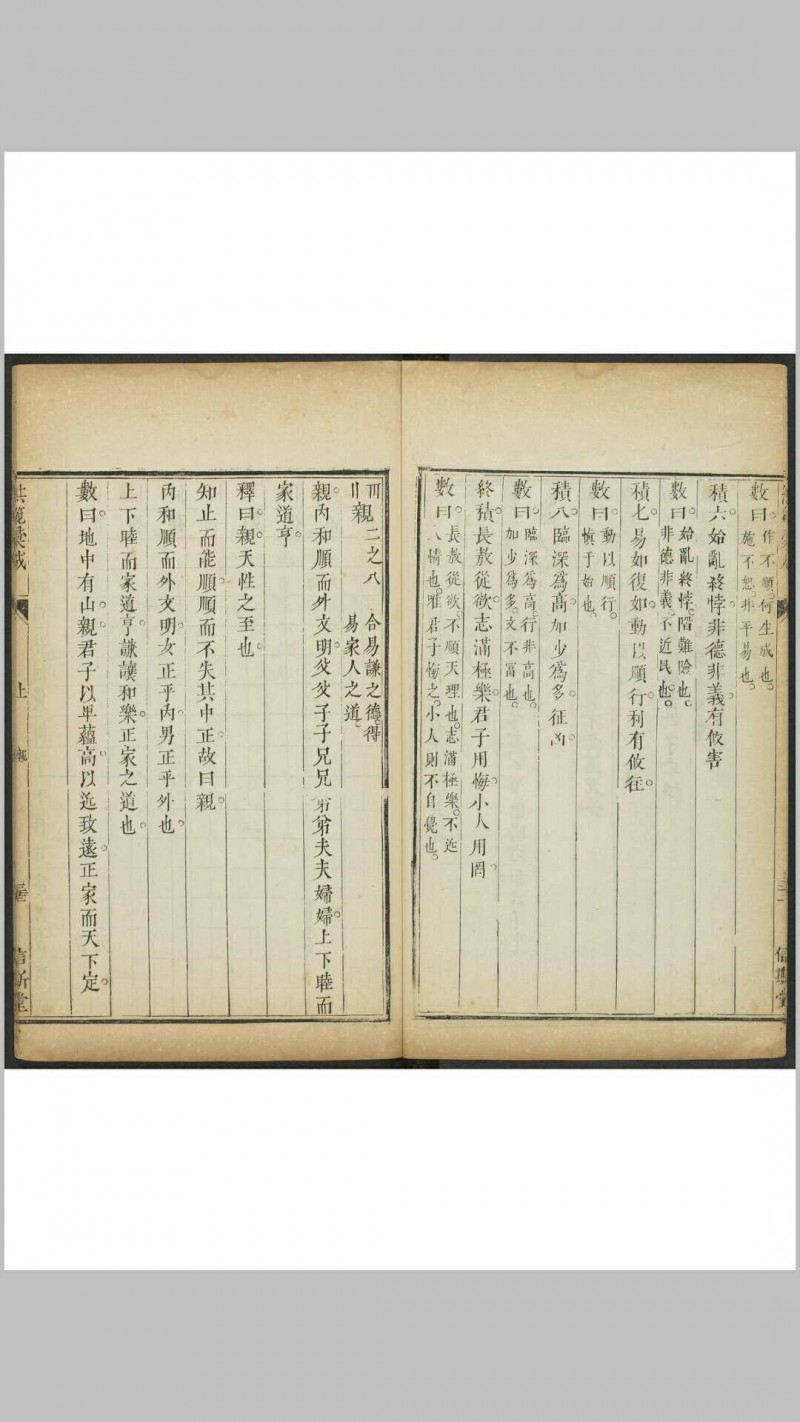 數曰作不順何生成也
施不恕非平易也
積六始亂終悖非德非義有攸害
數曰始亂終悖階難險也
非德非義不近民也
積七易如復如動以順行利有攸征
數曰動以順行
慎于始也
積八臨深爲高加少爲多征凶
數曰臨深爲高行非高也
加少爲多文不富也
終積長敖從欲志滿極樂君子用悔小人用罔
數曰長敖從欲不順天理也志滿極樂不近
人情也唯君子悔之小人則不自覺也
親二之八
合易謙之德得
易家人之道
親内和順而外文明父父子子兄兄弟弟夫夫婦婦上下睦而
家道亨
釋曰親天性之至也
知止而能順順而不失其中正故曰親
内和順而外文明女正乎内男正乎外也
上下睦而家道亨謙讓和樂正家之道也
數曰地中有山親君子以卑蘊高以近致遠正家而天下定
上